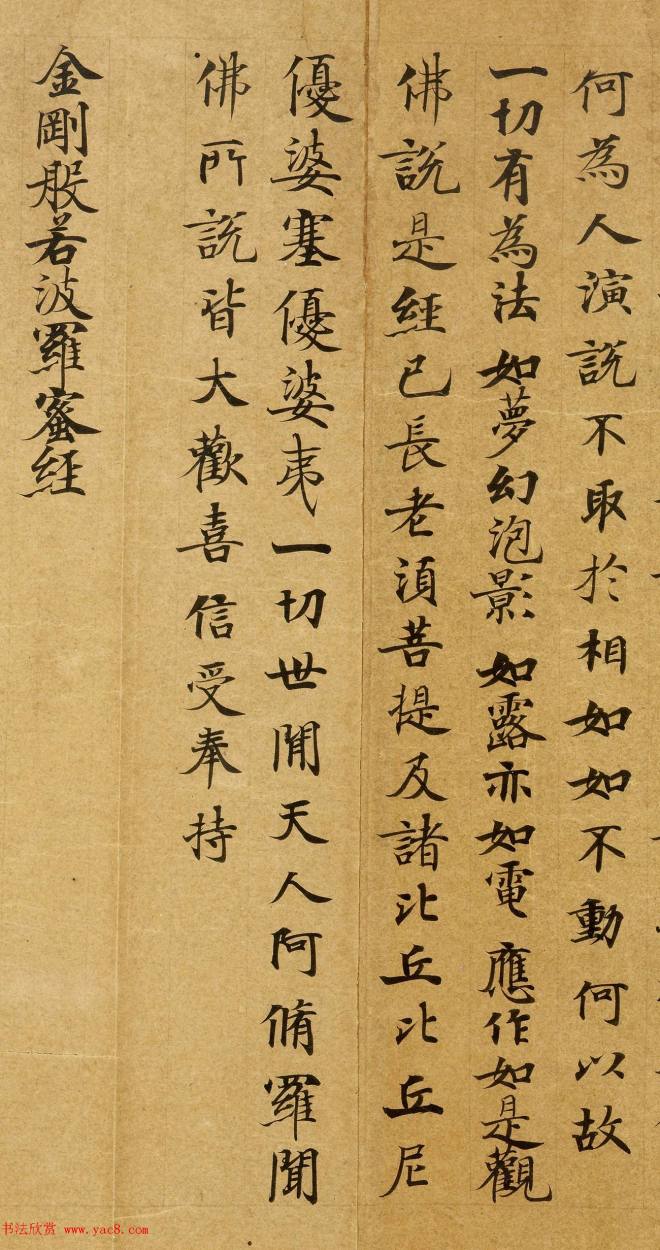 何為人演説不取於相如如不動何以故
一切有為法 如夢幻泡影 如露亦如電 應作如是觀
佛説是經已長老須菩提及諸比丘比丘尼
優婆塞優婆夷一切世間天人阿脩羅聞
佛所説皆大歡喜信受奉持
金剛般若波羅蜜經
书法欣赏 www.yac8.com